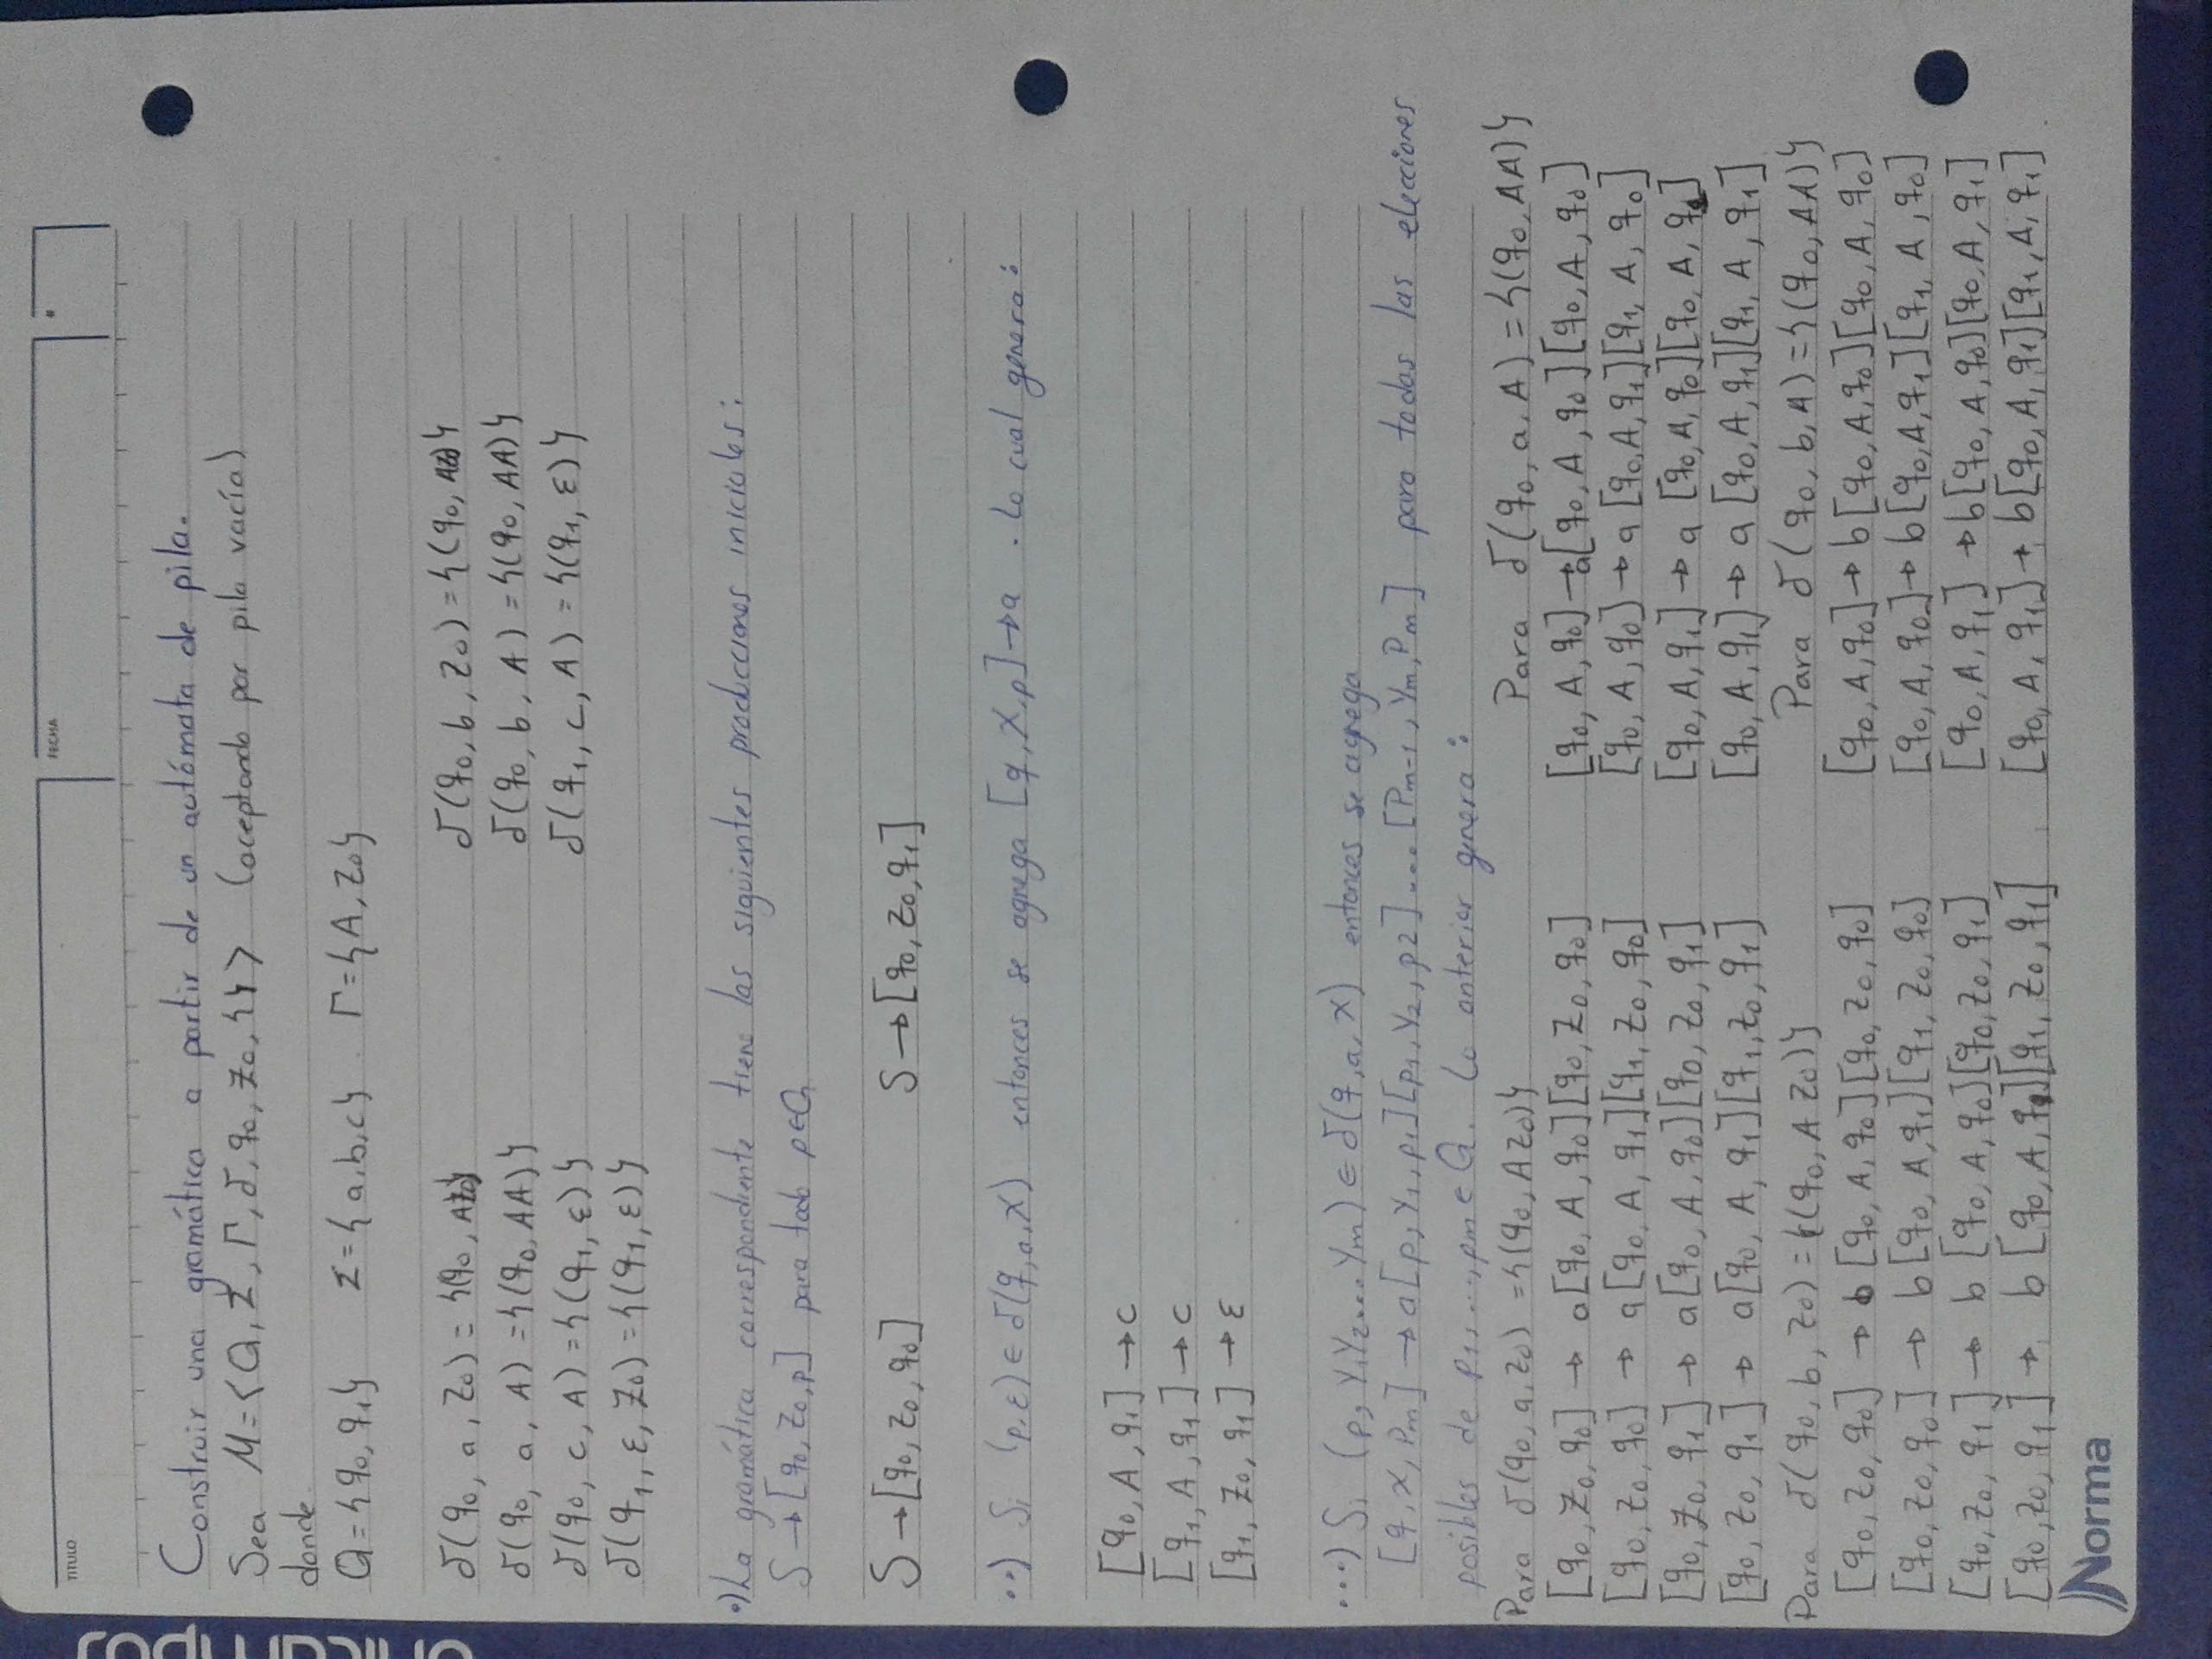 TITULO
FECHA
#
Construir una gramática a partir de un autómata de pila.
Sea M=<Q, Σ, Γ, δ, q₀, Z₀, {}> (aceptando por pila vacía)
donde
Q={q₀, q₁} Σ={a,b,c} Γ={A, Z₀}
δ(q₀, a, Z₀) = {(q₀, AZ₀)} δ(q₀, b, Z₀) = {(q₀, AZ₀)}
δ(q₀, a, A) = {(q₀, AA)} δ(q₀, b, A) = {(q₀, AA)}
δ(q₀, c, A) = {(q₁, ε)} δ(q₁, c, A) = {(q₁, ε)}
δ(q₁, ε, Z₀) = {(q₁, ε)}
•) La gramática correspondiente tiene las siguientes producciones iniciales:
S → [q₀, Z₀, p] para todo p∈Q
S → [q₀, Z₀, q₀] S → [q₀, Z₀, q₁]
••) Si (p, ε) ∈ δ(q, a, X) entonces se agrega [q, X, p] → a . Lo cual genera:
[q₀, A, q₁] → c
[q₁, A, q₁] → c
[q₁, Z₀, q₁] → ε
•••) Si (p, Y₁Y₂....Ym) ∈ δ(q, a, X) entonces se agrega
[q, X, Pm] → a[p, Y₁, p₁][p₁, Y₂, p2]....[Pm-1, Ym, Pm] para todas las elecciones
posibles de p₁,...,pm ∈ Q. Lo anterior genera:
Para δ(q₀, a, Z₀) = {(q₀, AZ₀)} Para δ(q₀, a, A) = {(q₀, AA)}
[q₀, Z₀, q₀] → a[q₀, A, q₀][q₀, Z₀, q₀] [q₀, A, q₀] → a[q₀, A, q₀][q₀, A, q₀]
[q₀, Z₀, q₀] → a[q₀, A, q₁][q₁, Z₀, q₀] [q₀, A, q₀] → a[q₀, A, q₁][q₁, A, q₀]
[q₀, Z₀, q₁] → a[q₀, A, q₀][q₀, Z₀, q₁] [q₀, A, q₁] → a[q₀, A, q₀][q₀, A, q₁]
[q₀, Z₀, q₁] → a[q₀, A, q₁][q₁, Z₀, q₁] [q₀, A, q₁] → a[q₀, A, q₁][q₁, A, q₁]
Para δ(q₀, b, Z₀) = {(q₀, AZ₀)} Para δ(q₀, b, A) = {(q₀, AA)}
[q₀, Z₀, q₀] → b[q₀, A, q₀][q₀, Z₀, q₀] [q₀, A, q₀] → b[q₀, A, q₀][q₀, A, q₀]
[q₀, Z₀, q₀] → b[q₀, A, q₁][q₁, Z₀, q₀] [q₀, A, q₀] → b[q₀, A, q₁][q₁, A, q₀]
[q₀, Z₀, q₁] → b[q₀, A, q₀][q₀, Z₀, q₁] [q₀, A, q₁] → b[q₀, A, q₀][q₀, A, q₁]
[q₀, Z₀, q₁] → b[q₀, A, q₁][q₁, Z₀, q₁] [q₀, A, q₁] → b[q₀, A, q₁][q₁, A, q₁]
Norma